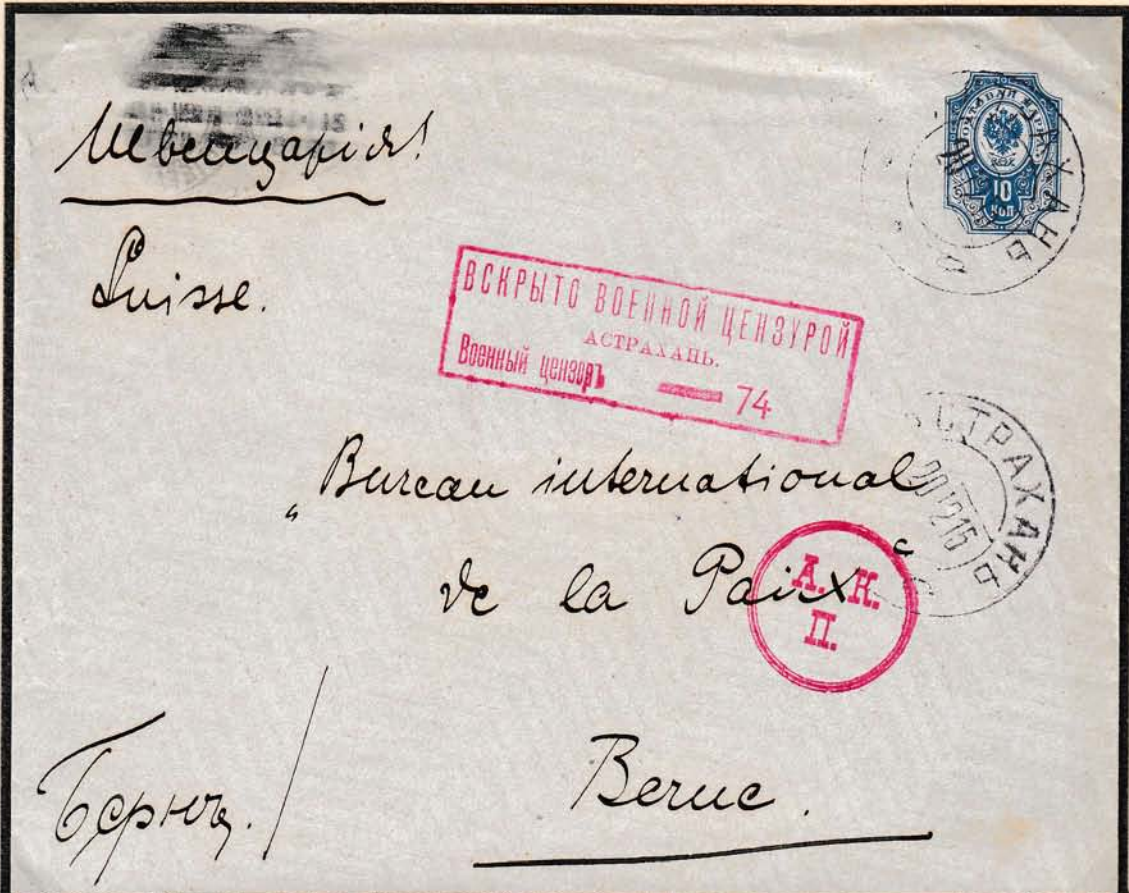 Швейцарія!
Suisse.
ПОЧТОВАЯ
10
КОП
АХАНЬ
ВСКРЫТО ВОЕННОЙ ЦЕНЗУРОЙ
АСТРАХАНЬ.
Военный цензоръ 74
АСТРАХАНЬ
20 12 15
„Bureau international
de la Paix“
А. К.
П.
Бернъ.
Berne.